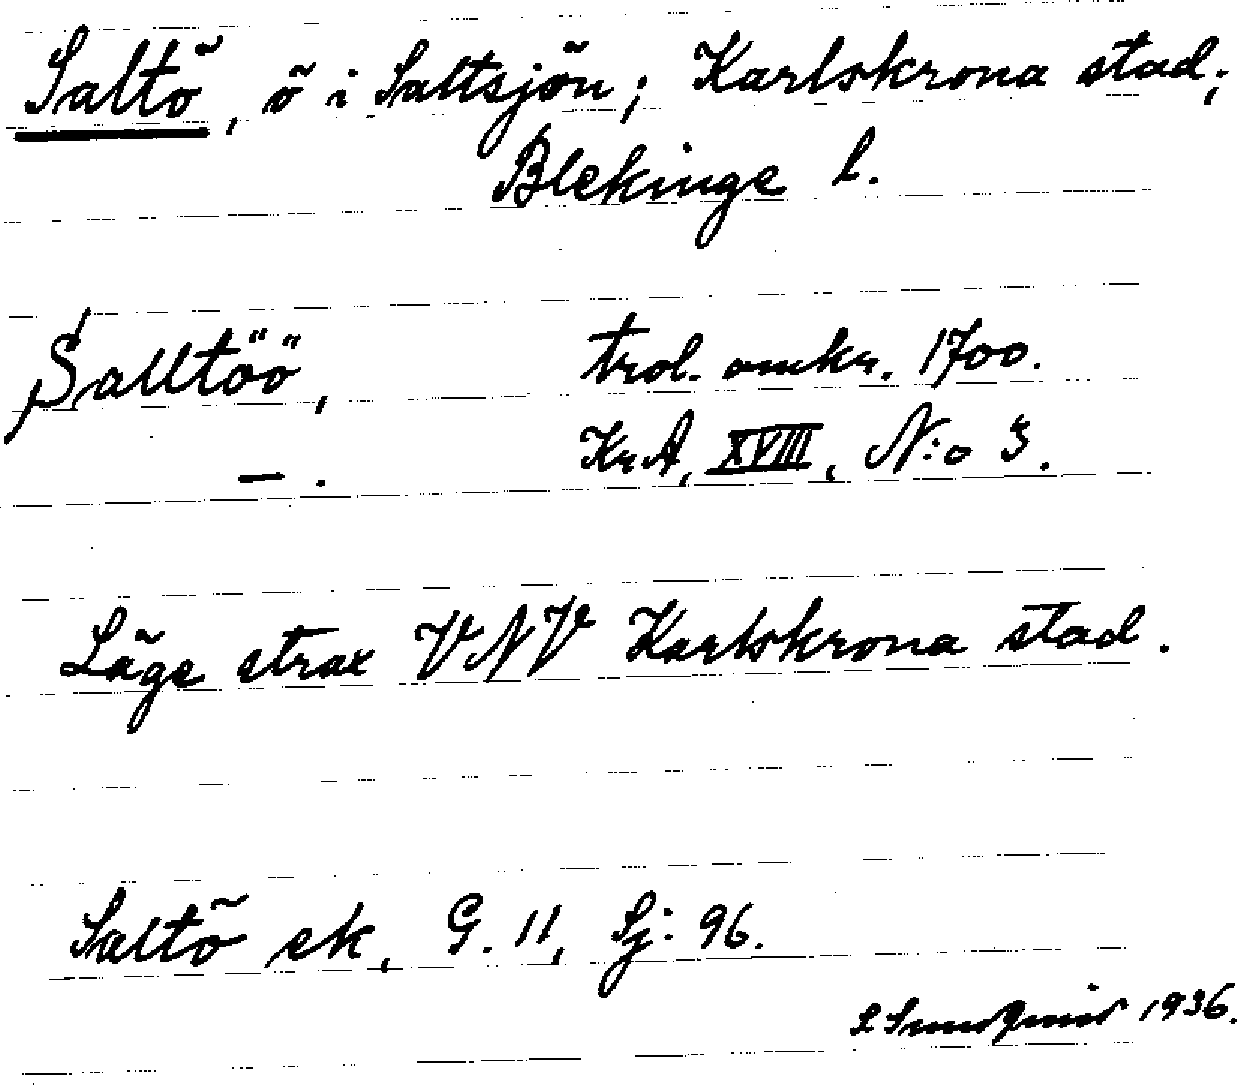 Saltö, ö i Saltsjön; Karlskrona stad;
Blekinge l.
Salltöö, trol. omkr. 1700.
—. KrA, XVIII, N:o 3.
Läge strax VNV Karlskrona stad.
Saltö ek, G. 11, Sj: 96.
S Sundqvist 1936.